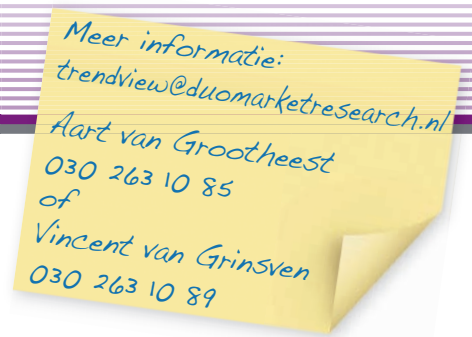 Meer informatie:
trendview@duomarketresearch.nl
Aart van Grootheest
030 263 10 85
of
Vincent van Grinsven
030 263 10 89